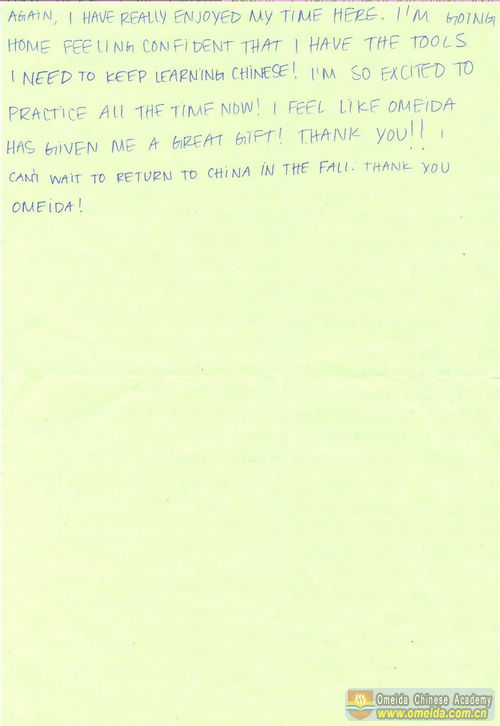 AGAIN, I HAVE REALLY ENJOYED MY TIME HERE. I'M GOING
HOME FEELING CONFIDENT THAT I HAVE THE TOOLS
I NEED TO KEEP LEARNING CHINESE! I'M SO EXCITED TO
PRACTICE ALL THE TIME NOW! I FEEL LIKE OMEIDA
HAS GIVEN ME A GREAT GIFT! THANK YOU!! I
CAN'T WAIT TO RETURN TO CHINA IN THE FALL. THANK YOU
OMEIDA!
Omeida Chinese Academy
www.omeida.com.cn